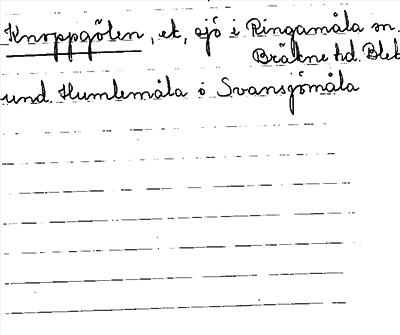 Knoppgölen, ek, sjö i Ringamåla sn.
Bräkne hd. Blek
und. Humlemåla o Svansgömåla